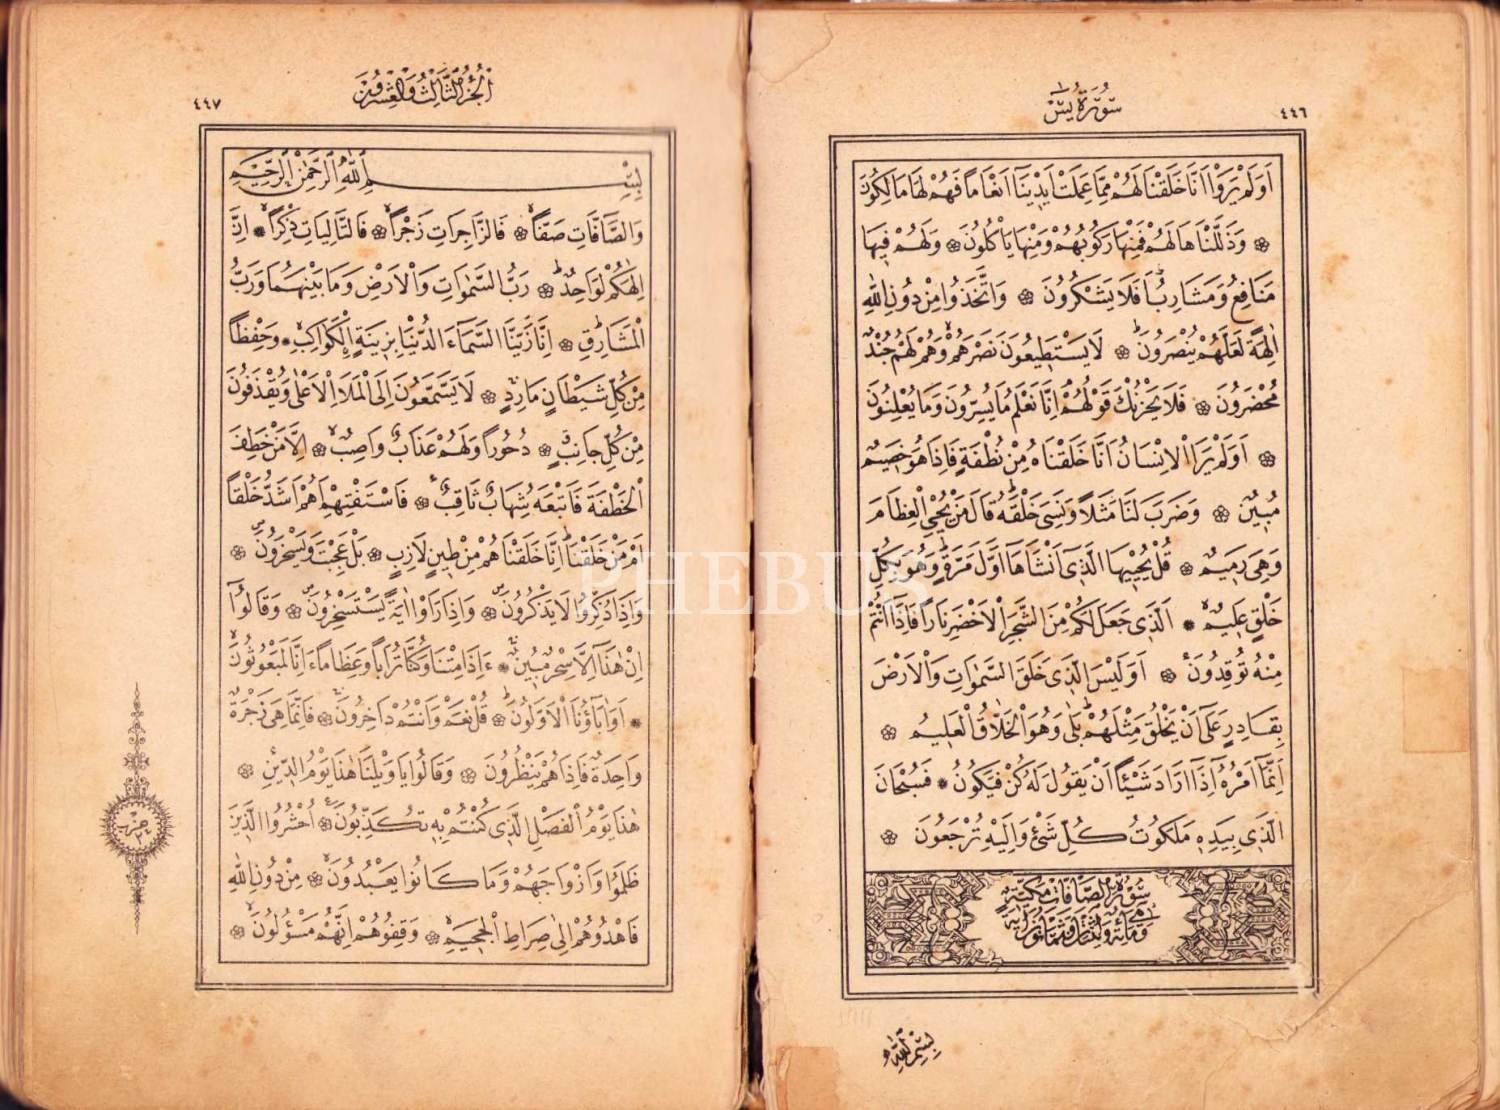 ٤٤٦
سُورَةُ يٰسٓ
اَوَلَمْ يَرَوْا اَنَّا خَلَقْنَا لَهُمْ مِمَّا عَمِلَتْ اَيْدٖينَا اَنْعَاماً فَهُمْ لَهَا مَالِكُونَ
وَذَلَّلْنَاهَا لَهُمْ فَمِنْهَا رَكُوبُهُمْ وَمِنْهَا يَأْكُلُونَ ۞ وَلَهُمْ فٖيهَا
مَنَافِعُ وَمَشَارِبُ اَفَلَا يَشْكُرُونَ ۞ وَاتَّخَذُوا مِنْ دُونِ اللّٰهِ
اٰلِهَةً لَعَلَّهُمْ يُنْصَرُونَ ۞ لَا يَسْتَطٖيعُونَ نَصْرَهُمْ وَهُمْ لَهُمْ جُنْدٌ
مُحْضَرُونَ ۞ فَلَا يَحْزُنْكَ قَوْلُهُمْ اِنَّا نَعْلَمُ مَا يُسِرُّونَ وَمَا يُعْلِنُونَ
۞ اَوَلَمْ يَرَ الْاِنْسَانُ اَنَّا خَلَقْنَاهُ مِنْ نُطْفَةٍ فَاِذَا هُوَ خَصٖيمٌ
مُبٖينٌ ۞ وَضَرَبَ لَنَا مَثَلاً وَنَسِيَ خَلْقَهُ قَالَ مَنْ يُحْيِ الْعِظَامَ
وَهِيَ رَمٖيمٌ ۞ قُلْ يُحْيٖيهَا الَّذٖٓى اَنْشَاَهَٓا اَوَّلَ مَرَّةٍ وَهُوَ بِكُلِّ
خَلْقٍ عَلٖيمٌ ۞ اَلَّذٖى جَعَلَ لَكُمْ مِنَ الشَّجَرِ الْاَخْضَرِ نَاراً فَاِذَٓا اَنْتُمْ
مِنْهُ تُوقِدُونَ ۞ اَوَلَيْسَ الَّذٖى خَلَقَ السَّمٰوَاتِ وَالْاَرْضَ
بِقَادِرٍ عَلٰٓى اَنْ يَخْلُقَ مِثْلَهُمْ بَلٰى وَهُوَ الْخَلَّاقُ الْعَلٖيمُ ۞
اِنَّمَٓا اَمْرُهُٓ اِذَٓا اَرَادَ شَيْـٔاً اَنْ يَقُولَ لَهُ كُنْ فَيَكُونُ ۞ فَسُبْحَانَ
الَّذٖى بِيَدِهٖ مَلَكُوتُ كُلِّ شَیْءٍ وَاِلَيْهِ تُرْجَعُونَ ۞
سُورَةُ الصَّافَّاتِ مَكِّيَّةٌ
وَهِيَ مِائَةٌ وَاِثْنَتَانِ وَثَمَانُونَ اٰيَةً
بِسْمِ اللّٰهِ
٤٤٧
اَلْجُزْءُ الثَّالِثُ وَالْعِشْرُونَ
بِسْمِ اللّٰهِ الرَّحْمٰنِ الرَّحٖيمِ
وَالصَّٓافَّاتِ صَفّاً ۞ فَالزَّاجِرَاتِ زَجْراً ۞ فَالتَّالِيَاتِ ذِكْراً ۞ اِنَّ
اِلٰهَكُمْ لَوَاحِدٌ ۞ رَبُّ السَّمٰوَاتِ وَالْاَرْضِ وَمَا بَيْنَهُمَا وَرَبُّ
الْمَشَارِقِ ۞ اِنَّا زَيَّنَّا السَّمَٓاءَ الدُّنْيَا بِزٖينَةٍ الْكَوَاكِبِ ۞ وَحِفْظاً
مِنْ كُلِّ شَيْطَانٍ مَارِدٍ ۞ لَا يَسَّمَّعُونَ اِلَى الْمَلَاِ الْاَعْلٰى وَيُقْذَفُونَ
مِنْ كُلِّ جَانِبٍ ۞ دُحُوراً وَلَهُمْ عَذَابٌ وَاصِبٌ ۞ اِلَّا مَنْ خَطِفَ
الْخَطْفَةَ فَاَتْبَعَهُ شِهَابٌ ثَاقِبٌ ۞ فَاسْتَفْتِهِمْ اَهُمْ اَشَدُّ خَلْقاً
اَمْ مَنْ خَلَقْنَا اِنَّا خَلَقْنَاهُمْ مِنْ طٖينٍ لَازِبٍ ۞ بَلْ عَجِبْتَ وَيَسْخَرُونَ ۞
وَاِذَا ذُكِّرُوا لَا يَذْكُرُونَ ۞ وَاِذَا رَاَوْا اٰيَةً يَسْتَسْخِرُونَ ۞ وَقَالُٓوا
اِنْ هٰذَٓا اِلَّا سِحْرٌ مُبٖينٌ ۞ ءَاِذَا مِتْنَا وَكُنَّا تُرَاباً وَعِظَاماً ءَاِنَّا لَمَبْعُوثُونَ
۞ اَوَاٰبَٓاؤُنَا الْاَوَّلُونَ ۞ قُلْ نَعَمْ وَاَنْتُمْ دَاخِرُونَ ۞ فَاِنَّمَا هِيَ زَجْرَةٌ
وَاحِدَةٌ فَاِذَا هُمْ يَنْظُرُونَ ۞ وَقَالُوا يَا وَيْلَنَا هٰذَا يَوْمُ الدّٖينِ ۞
هٰذَا يَوْمُ الْفَصْلِ الَّذٖى كُنْتُمْ بِهٖ تُكَذِّبُونَ ۞ اُحْشُرُوا الَّذٖينَ
ظَلَمُوا وَاَزْوَاجَهُمْ وَمَا كَانُوا يَعْبُدُونَ ۞ مِنْ دُونِ اللّٰهِ
فَاهْدُوهُمْ اِلٰى صِرَاطِ الْجَحٖيمِ ۞ وَقِفُوهُمْ اِنَّهُمْ مَسْؤُلُونَ ۞
جزء
PHEBUS